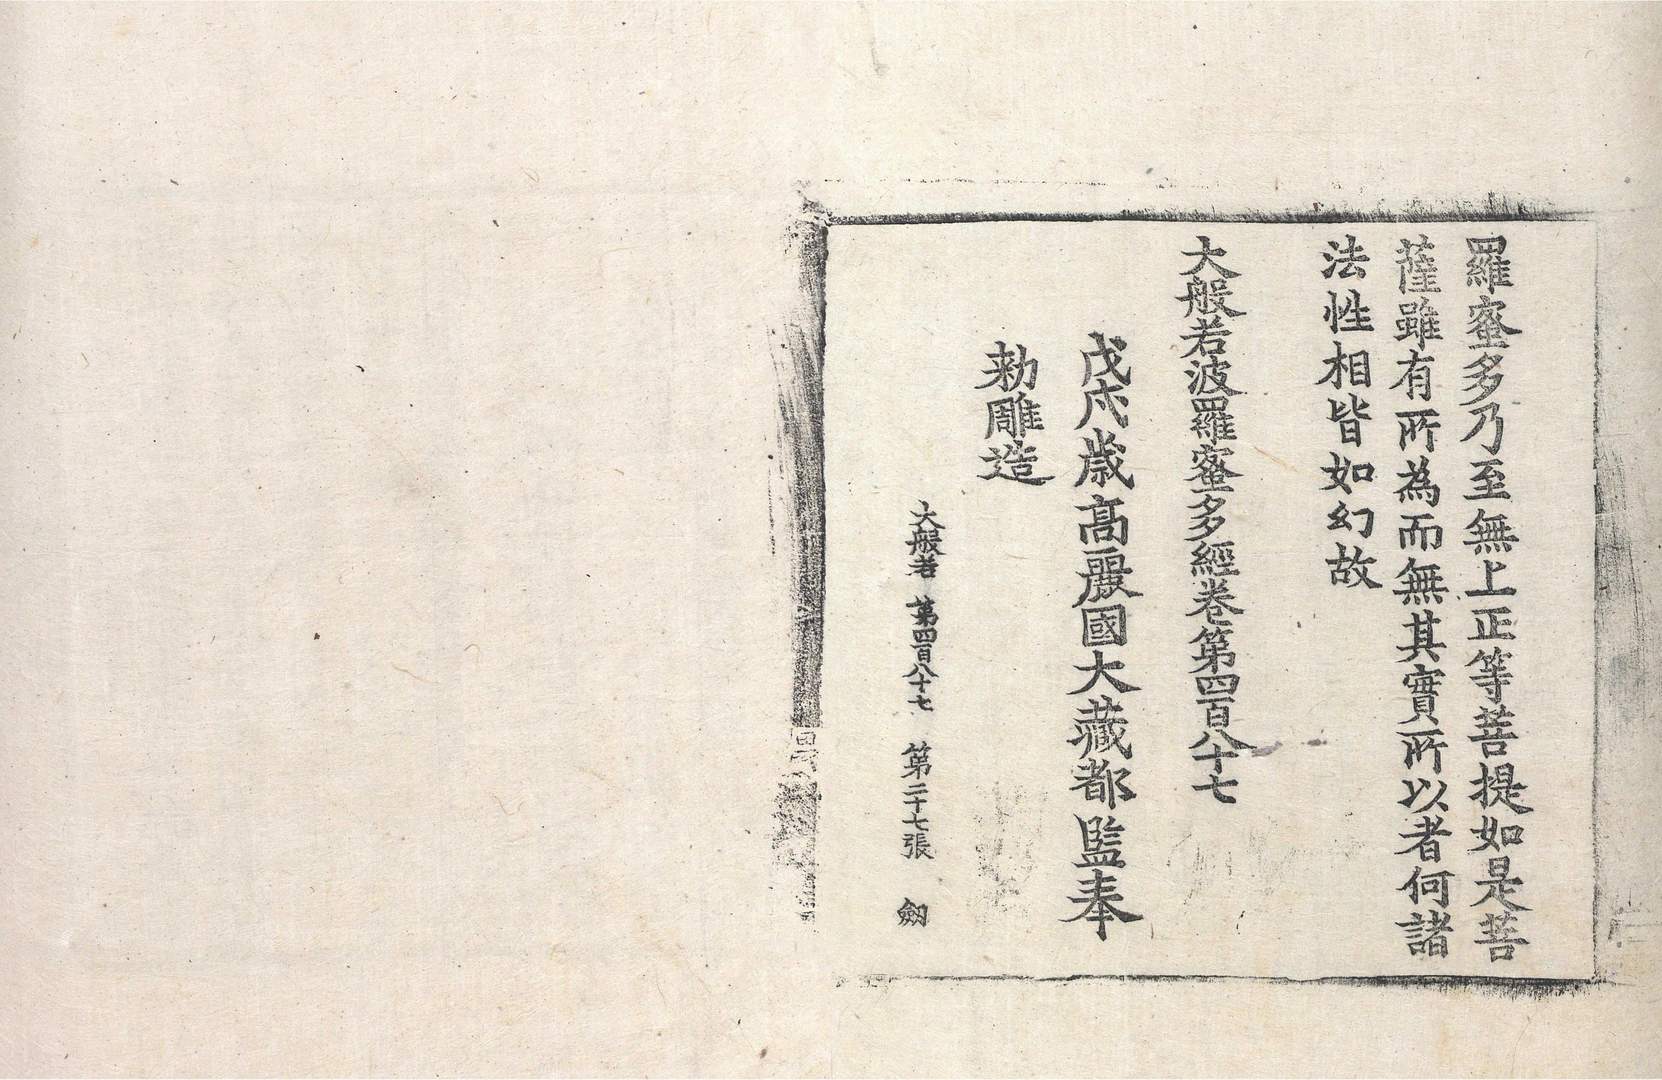 羅蜜多乃至無上正等菩提如是菩
薩雖有所為而無其實所以者何諸
法性相皆如幻故
大般若波羅蜜多經卷第四百八十七
戊戌歲高麗國大藏都監奉
勅雕造
大般若 第四百八十七 第二十七張 劒